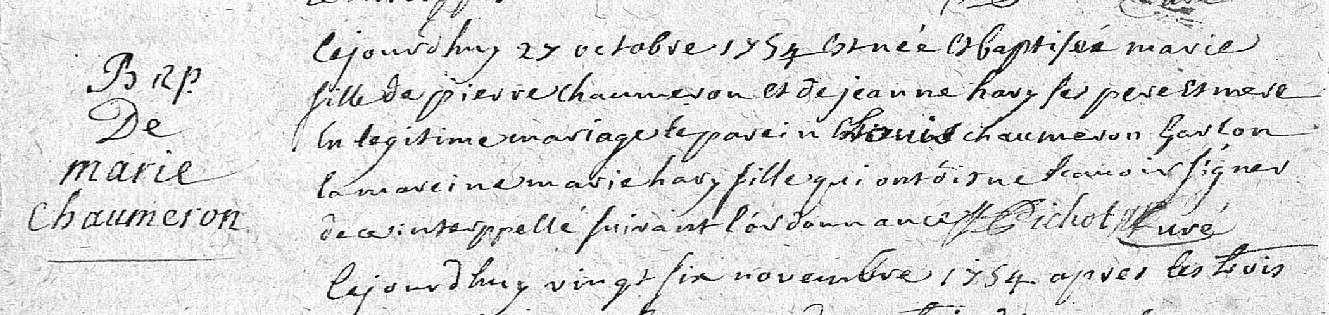 Bap.
De
marie
Chaumeron
Cejourdhuy 27 octobre 1754 Est née Et baptisée marie
fille de pierre Chaumeron Et de jeanne hary ses pere Et mere
En legitime mariage le parein Louis chaumeron Garson
la mareine marie hary fille qui ont dis ne scavoir signer
de ce interppellé suivant l'ordonnance Pichot Curé
Cejourdhuy vingt six novembre 1754 apres les trois